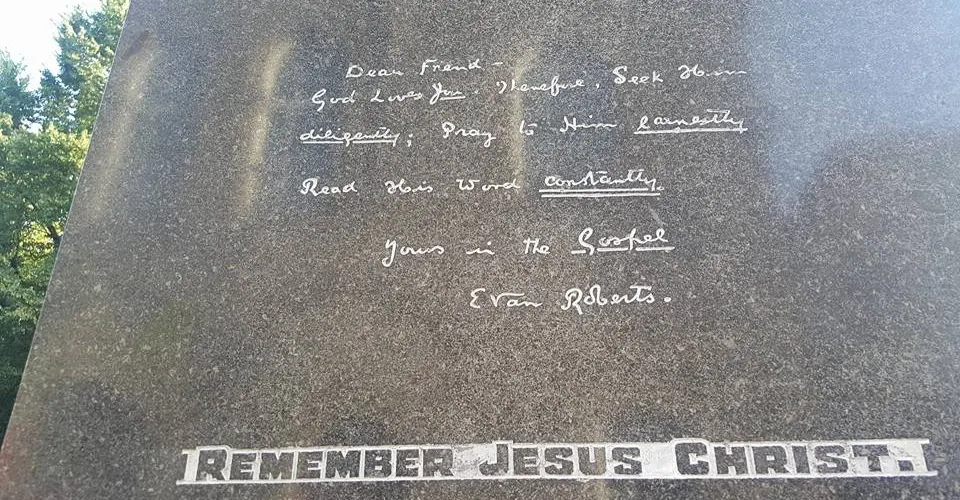 Dear Friend -
God Loves You. Therefore, Seek Him
diligently; Pray to Him Earnestly
Read His Word constantly.
Yours in the Gospel
Evan Roberts.
REMEMBER JESUS CHRIST.